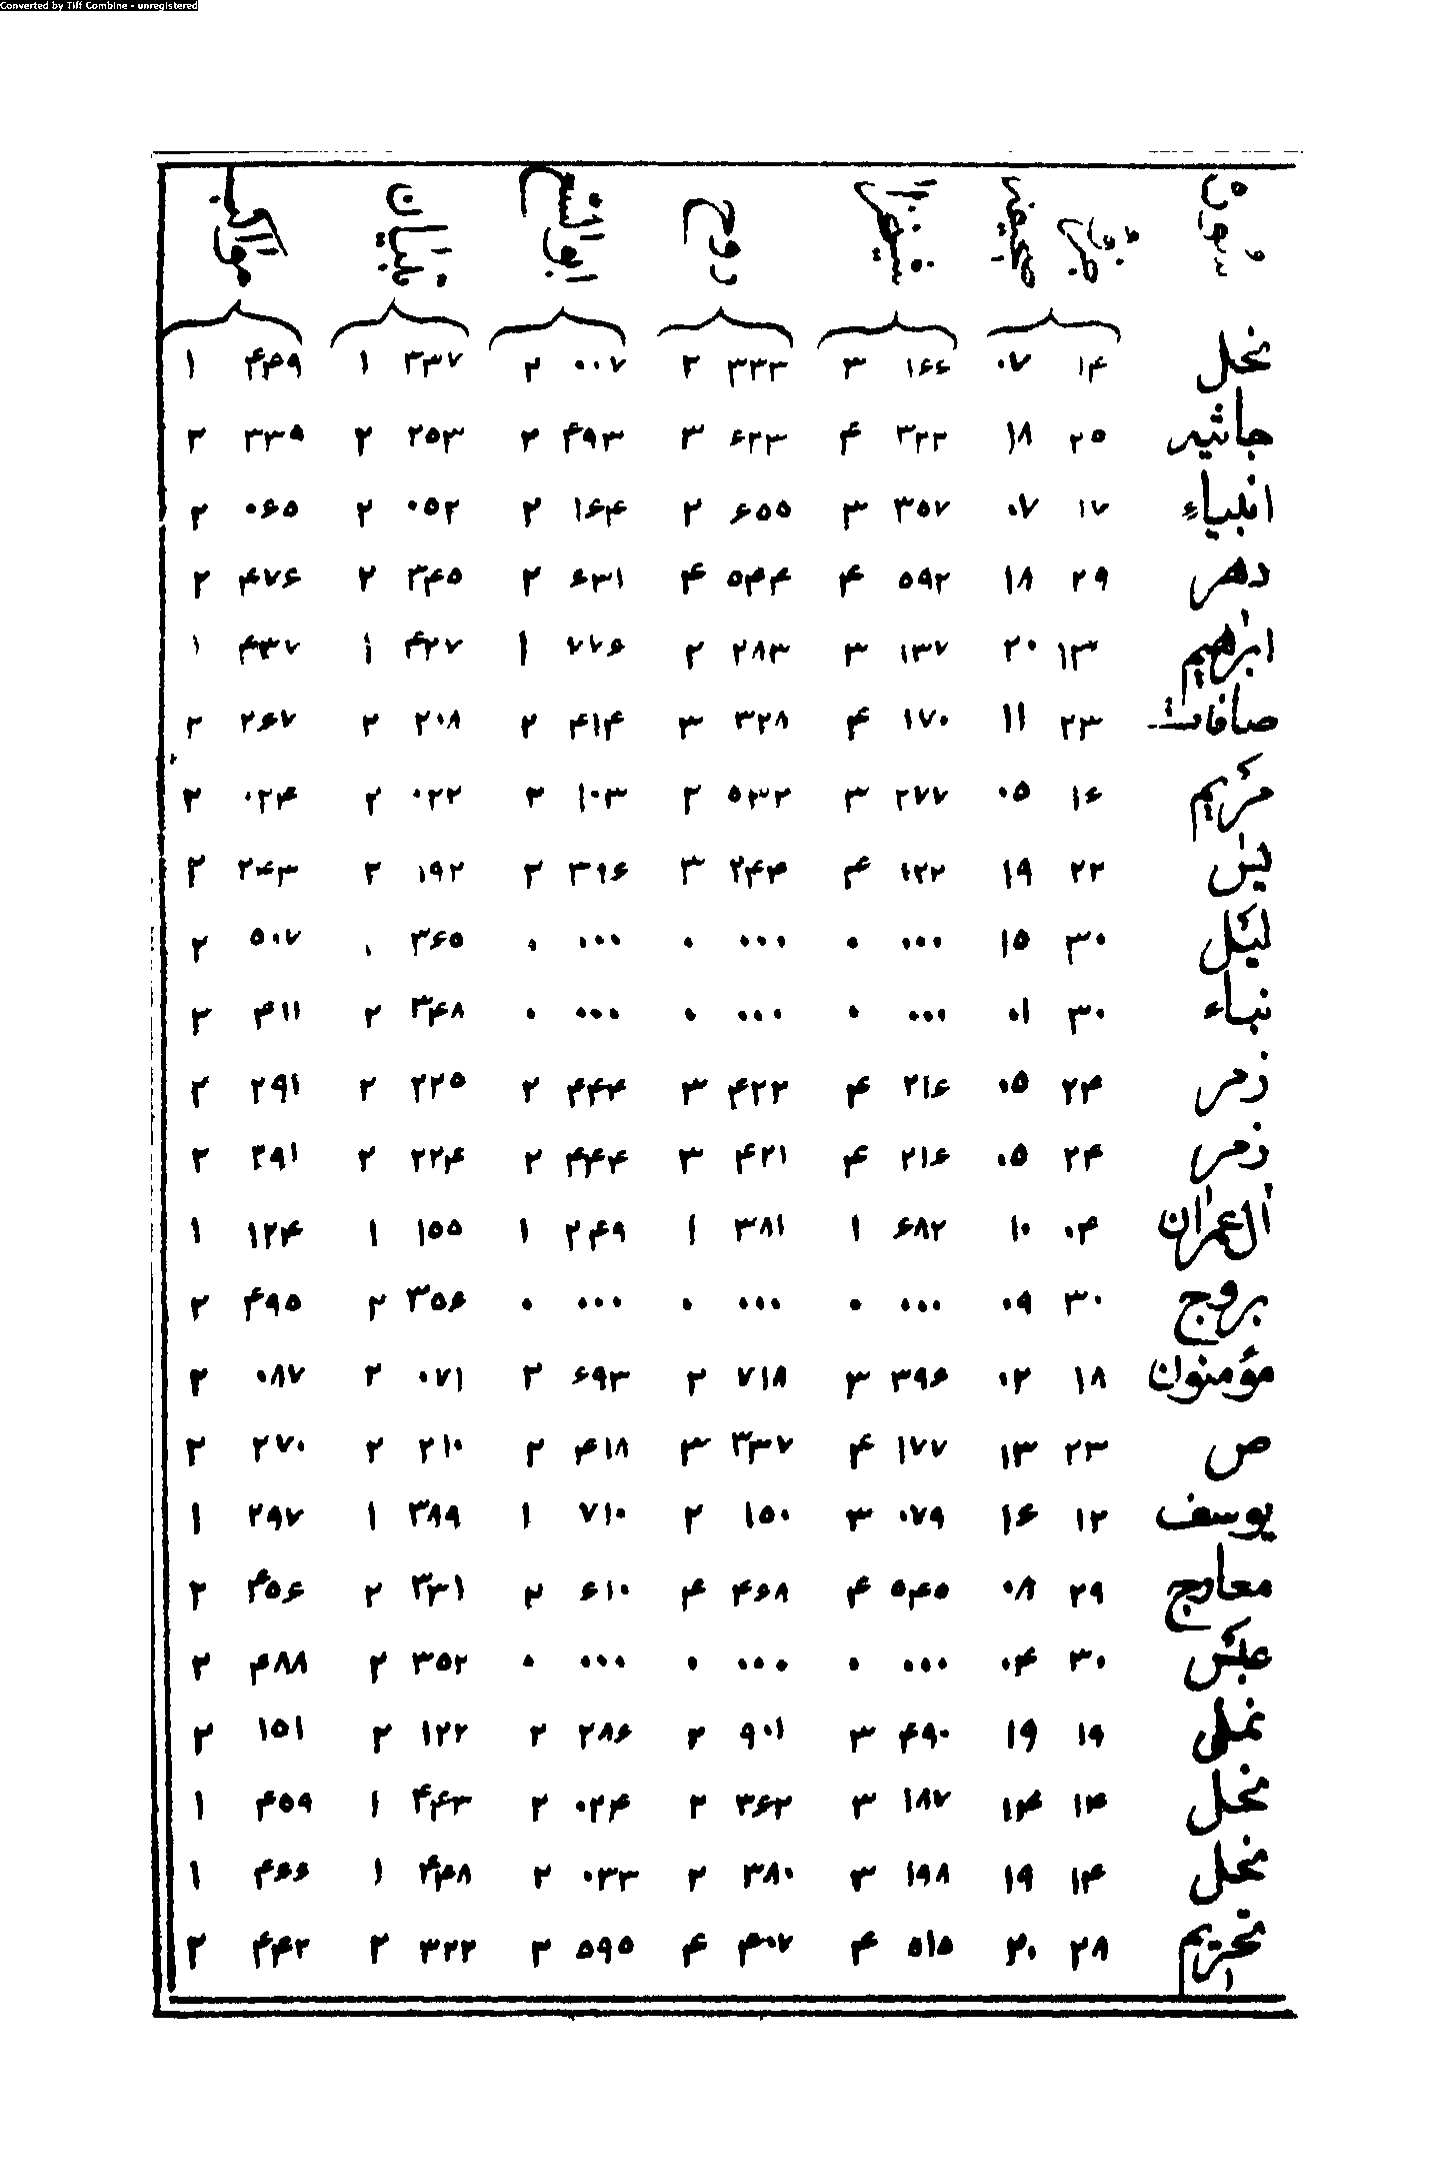 Converted by Tiff Combine - unregistered
سوره جزو قرآن صحیفه روح تبیان مواکب
نحل ۱۴ ۰۷ ۱۶۶ ۳ ۳۳۳ ۲ ۰۰۷ ۲ ۳۳۷ ۱ ۴۴۹ ۱
جاثیه ۲۵ ۱۸ ۳۲۲ ۴ ۶۲۳ ۳ ۴۹۳ ۲ ۲۵۳ ۲ ۳۳۹ ۲
انبیاء ۱۷ ۰۷ ۳۵۷ ۳ ۶۵۵ ۲ ۱۶۴ ۲ ۰۵۲ ۲ ۰۶۵ ۲
دهر ۲۹ ۱۸ ۵۹۲ ۴ ۵۴۴ ۴ ۶۳۱ ۲ ۳۴۵ ۲ ۴۷۶ ۲
ابراهیم ۱۳ ۲۰ ۱۳۷ ۳ ۲۸۳ ۲ ۷۷۶ ۱ ۴۲۷ ۱ ۴۳۷ ۱
صافات ۲۳ ۱۱ ۱۷۰ ۴ ۳۲۸ ۳ ۴۱۴ ۲ ۲۰۸ ۲ ۲۶۷ ۲
مریم ۱۶ ۰۵ ۲۷۷ ۳ ۵۳۲ ۲ ۱۰۳ ۲ ۰۲۲ ۲ ۰۲۴ ۲
یس ۲۲ ۱۹ ۱۲۲ ۴ ۲۴۴ ۳ ۳۹۶ ۲ ۱۹۲ ۲ ۲۴۳ ۲
لیل ۳۰ ۱۵ ۰۰۰ ۰ ۰۰۰ ۰ ۰۰۰ ۰ ۳۶۵ ۰ ۵۰۷ ۲
نباء ۳۰ ۰۱ ۰۰۰ ۰ ۰۰۰ ۰ ۰۰۰ ۰ ۳۴۸ ۲ ۴۱۱ ۲
زمر ۲۴ ۰۵ ۲۱۶ ۴ ۴۲۲ ۳ ۴۴۴ ۲ ۲۲۵ ۲ ۲۹۱ ۲
زمر ۲۴ ۰۵ ۲۱۶ ۴ ۴۲۱ ۳ ۴۴۴ ۲ ۲۲۴ ۲ ۲۹۱ ۲
آل عمران ۰۴ ۱۰ ۶۸۲ ۱ ۳۸۱ ۱ ۲۴۹ ۱ ۱۵۵ ۱ ۱۲۴ ۱
بروج ۳۰ ۰۹ ۰۰۰ ۰ ۰۰۰ ۰ ۰۰۰ ۰ ۳۵۶ ۲ ۴۹۵ ۲
مؤمنون ۱۸ ۰۲ ۳۹۶ ۳ ۷۱۸ ۲ ۶۹۳ ۲ ۰۷۱ ۲ ۰۸۷ ۲
ص ۲۳ ۱۳ ۱۷۷ ۴ ۳۳۷ ۳ ۴۱۸ ۲ ۲۱۰ ۲ ۲۷۰ ۲
یوسف ۱۲ ۱۶ ۰۷۹ ۳ ۱۵۰ ۲ ۷۱۰ ۱ ۳۸۹ ۱ ۲۹۷ ۱
معارج ۲۹ ۰۸ ۵۴۵ ۴ ۴۶۸ ۴ ۶۱۰ ۲ ۳۳۱ ۲ ۴۵۶ ۲
عبس ۳۰ ۰۴ ۰۰۰ ۰ ۰۰۰ ۰ ۰۰۰ ۰ ۳۵۲ ۲ ۴۸۸ ۲
نمل ۱۹ ۱۹ ۴۹۰ ۳ ۹۰۱ ۲ ۲۸۶ ۲ ۱۲۲ ۲ ۱۵۱ ۲
نحل ۱۴ ۱۴ ۱۸۷ ۳ ۳۶۲ ۲ ۰۲۴ ۲ ۴۴۳ ۱ ۴۵۹ ۱
نحل ۱۴ ۱۹ ۱۹۸ ۳ ۳۸۰ ۲ ۰۳۳ ۲ ۴۴۸ ۱ ۴۶۶ ۱
تحریم ۲۸ ۲۰ ۵۱۵ ۴ ۴۰۷ ۴ ۵۹۵ ۲ ۳۲۲ ۲ ۴۴۲ ۲